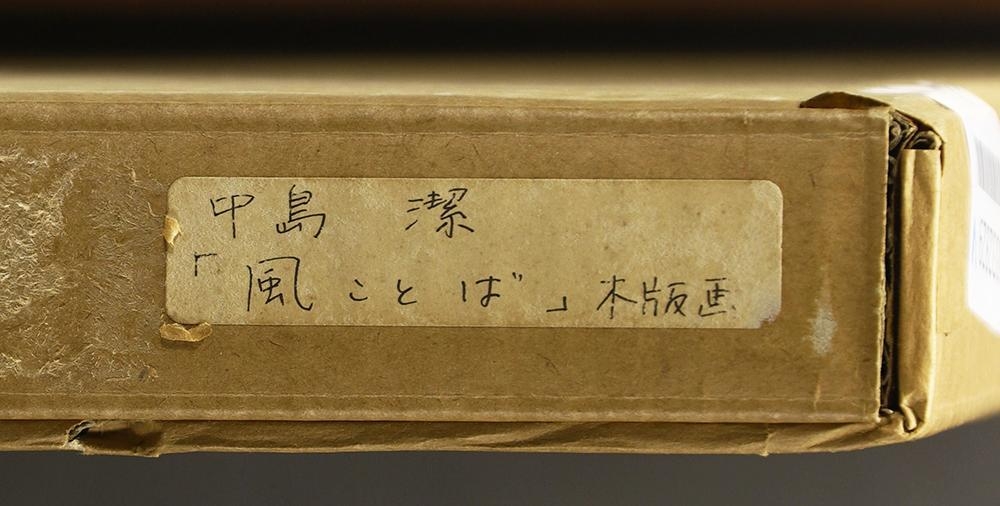 中島 潔
「風ことば」木版画